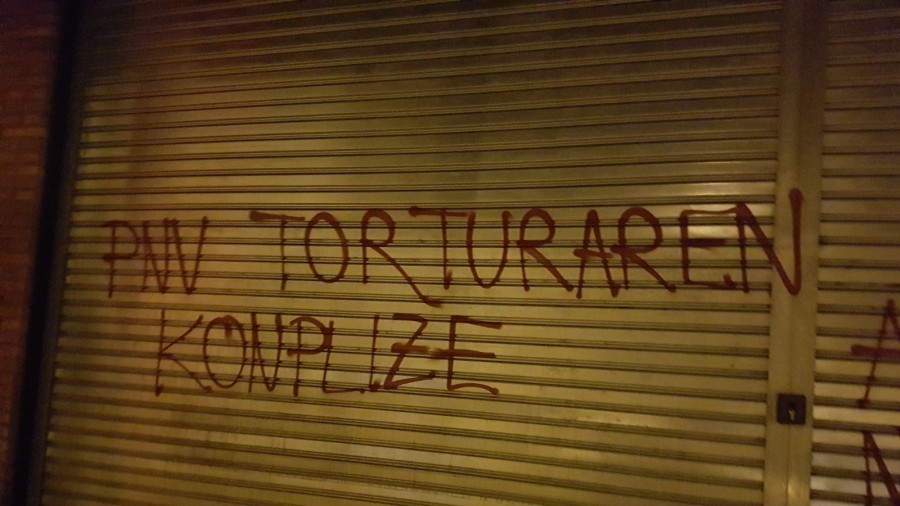 PNV TORTURAREN
KONPLIZE